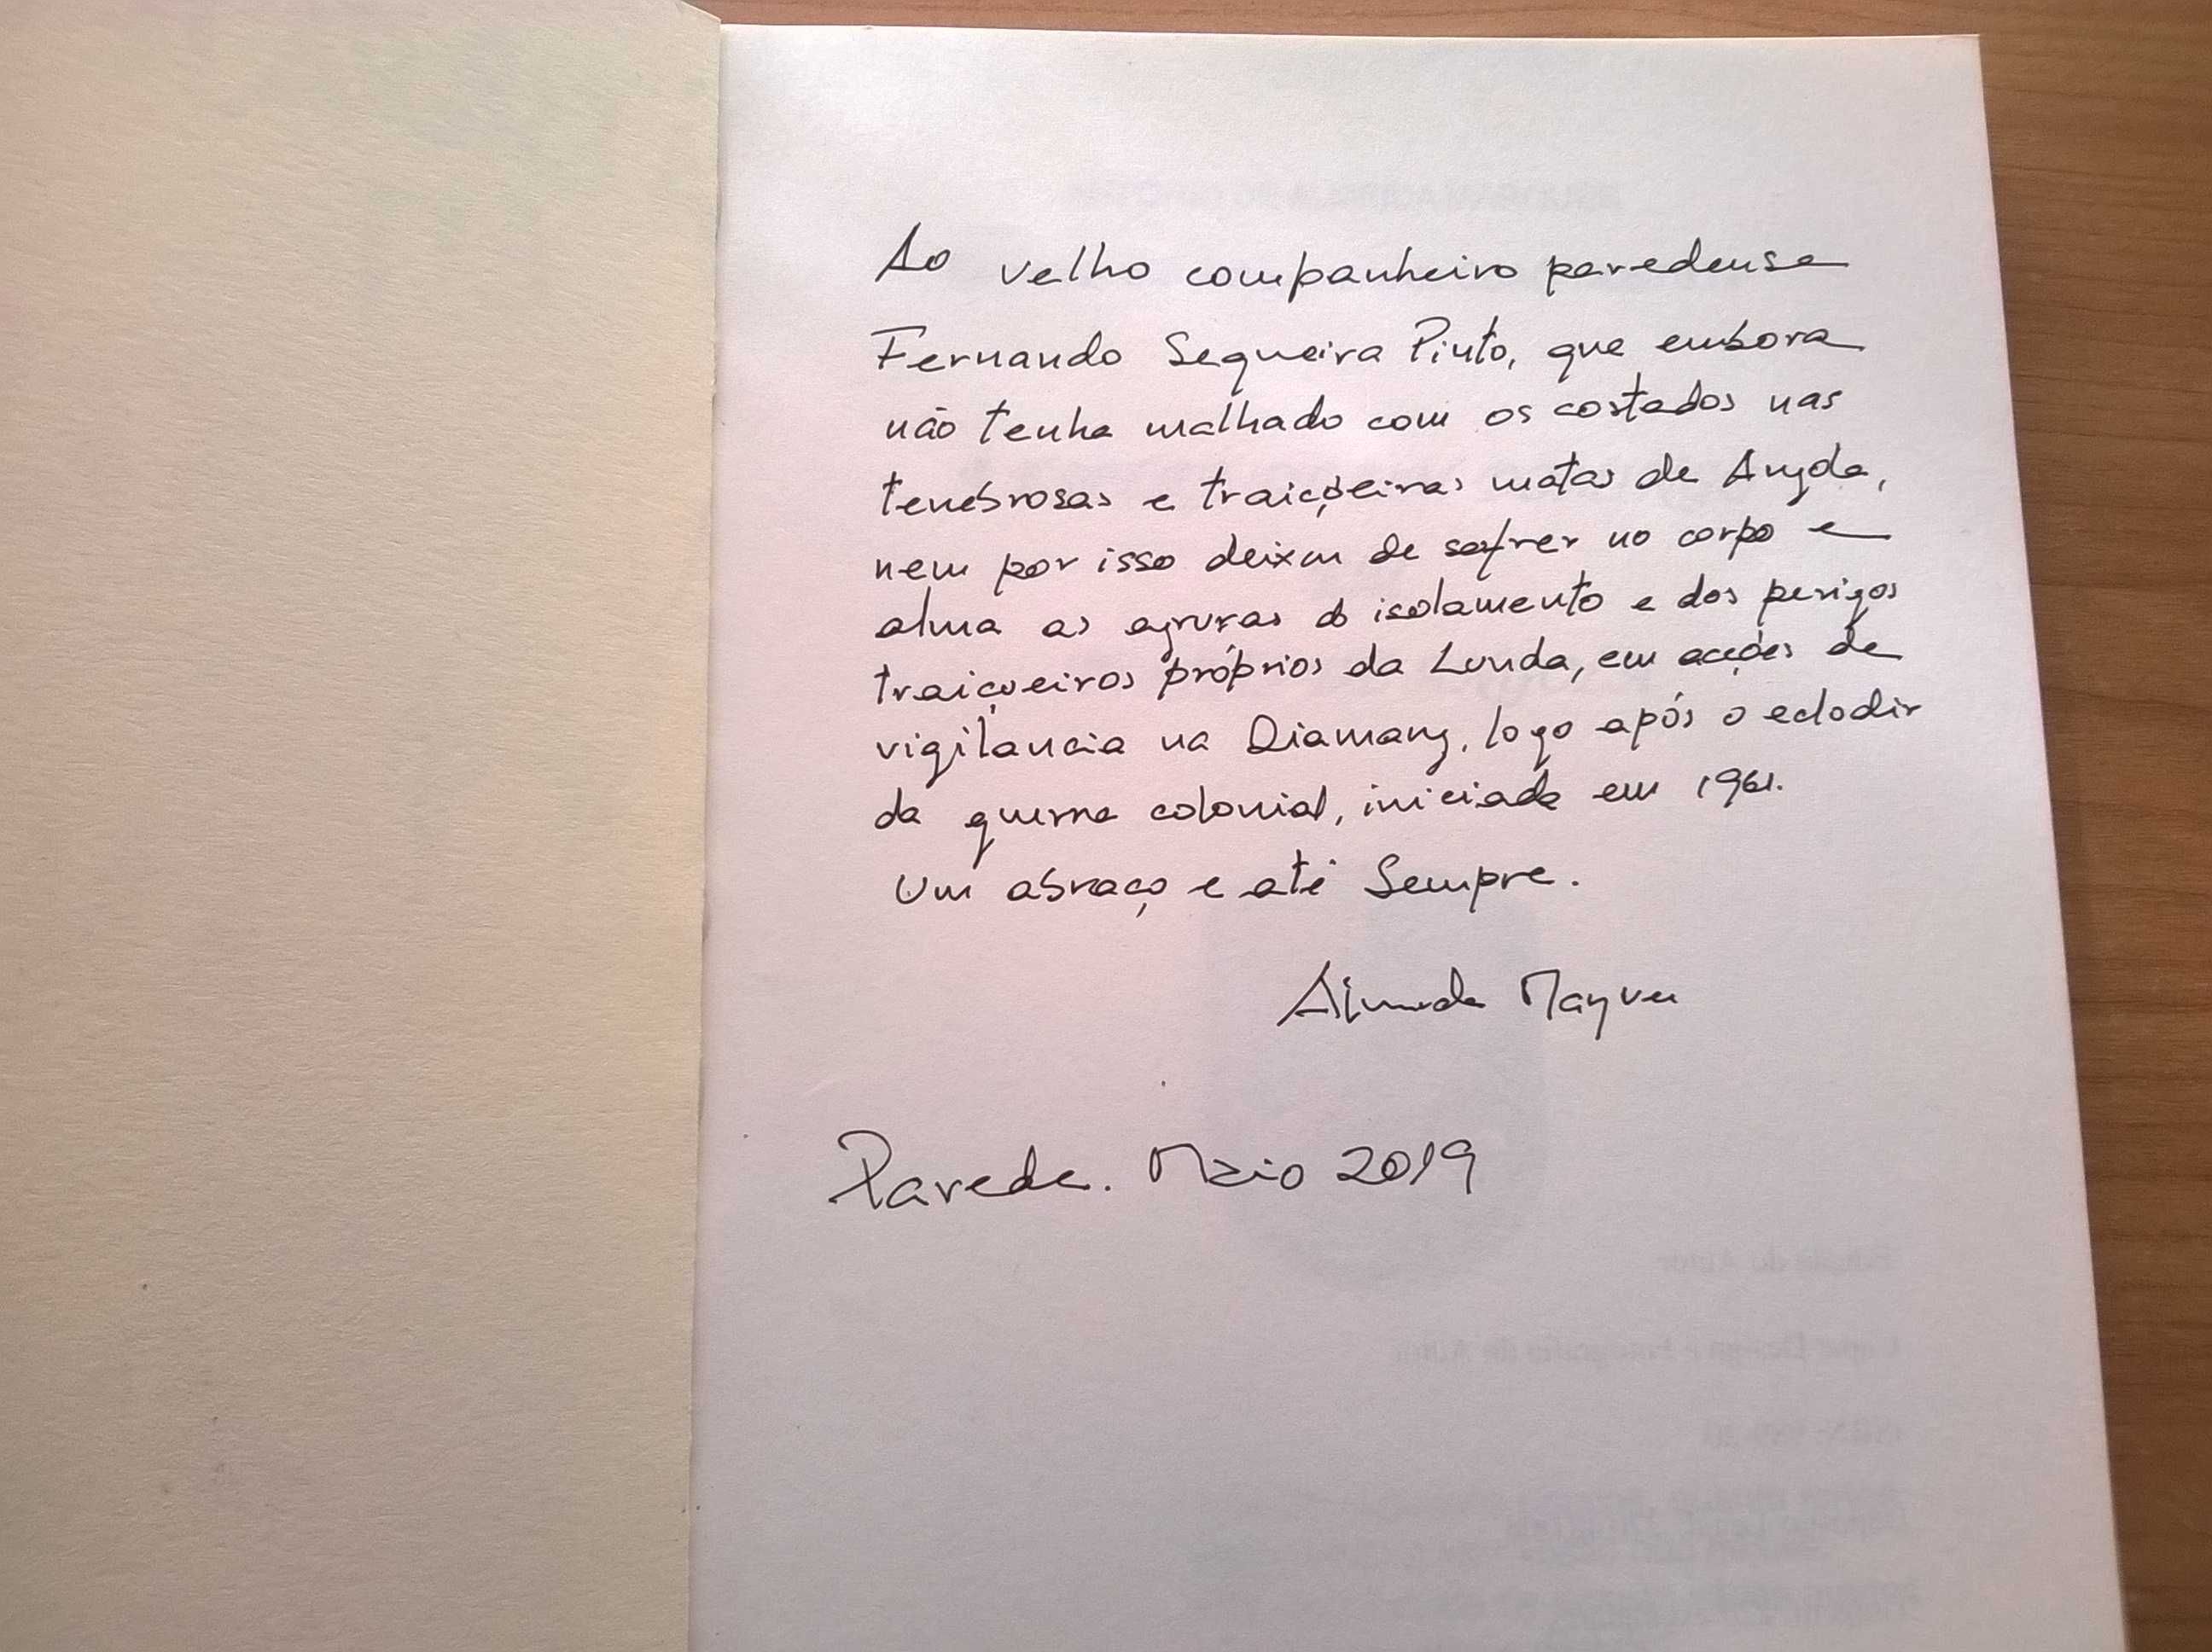 Ao velho companheiro paredense
Fernando Sequeira Pinto, que embora
não tenha malhado com os costados nas
tenebrosas e traiçoeiras matas de Angola,
nem por isso deixou de sofrer no corpo e
alma as agruras do isolamento e dos perigos
traiçoeiros próprios da Lunda, em acções de
vigilancia na Diamang, logo após o eclodir
da guerra colonial, iniciada em 1961.
Um abraço e até Sempre.
Almeida
Parede. Maio 2019